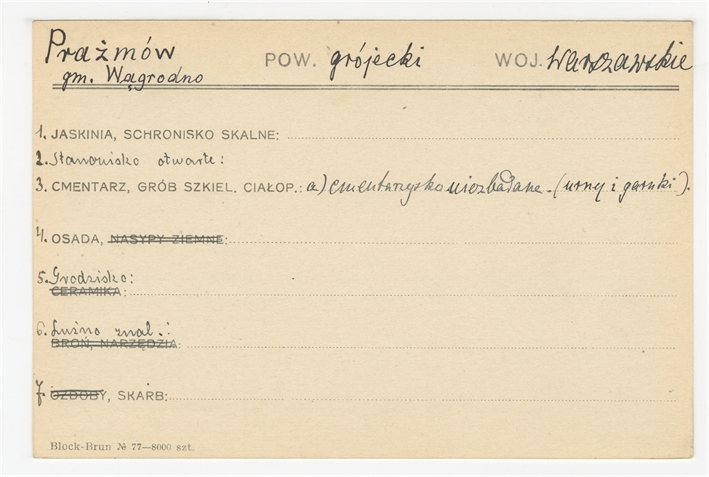 Prażmów POW. grójecki WOJ. Warszawskie
gm. Wągrodno
1. JASKINIA, SCHRONISKO SKALNE:
2. Stanowisko otwarte:
3. CMENTARZ, GRÓB SZKIEL. CIAŁOP.: a) cmentarzysko niezbadane. (urny i garnki).
4. OSADA, NASYPY ZIEMNE:
5. Grodzisko:
CERAMIKA:
6. Luźno znal.:
BROŃ, NARZĘDZIA:
7. OZDOBY, SKARB:
Block-Brun № 77—8000 szt.